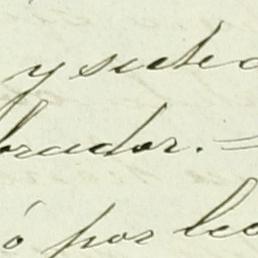 y siete
brador. =
ó por le